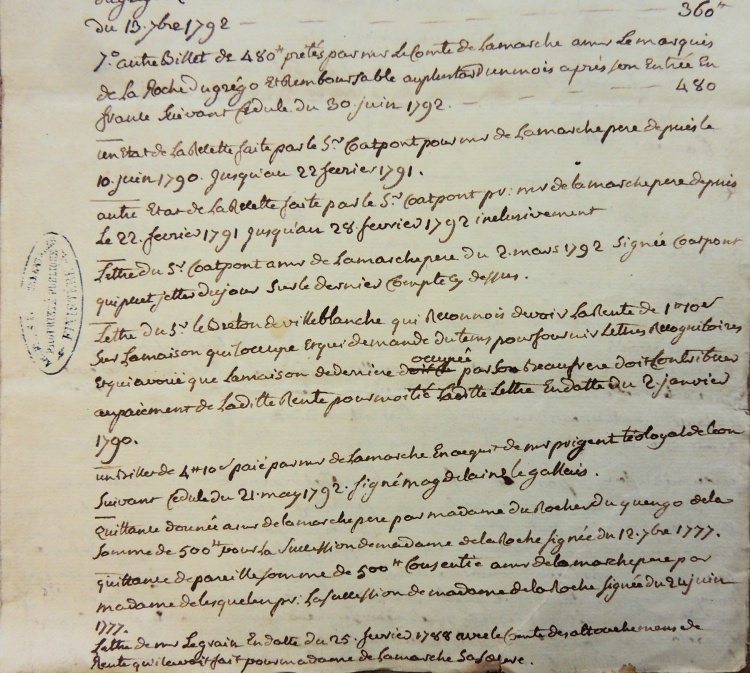 du 13. 7bre 1792 — 360lt
7.° autre Billet de 480lt pretés par mr Le Comte de Lamarche a mr Le marquis
de La Roche Dugrégo et Remboursable auplutard un mois après son Entrée En
france Suivant Cédule du 30 juin 1792. — 480
un Etat de La Recette faite par le Sr. Coatpont pour mr de Lamarche pere depuis le
10. juin 1790. jusqu'au 22 fevrier 1791.
autre Etat de La Recette faite par le Sr. Coatpont pr: mr de la marche pere depuis
Le 22. fevrier 1791 jusqu'au 28 fevrier 1792 inclusivement
Lettre du Sr Coatpont a mr de Lamarche pere du 2. mars 1792 signée Coatpont
qui peut jetter du jour Sur le dernier Compte cy dessus.
Lettre du Sr. le Breton de villeblanche qui Reconnois devoir La Rente de 1lt 10s
Sur La maison qu'il occupe Et qui demande du tems pour fournir Lettres Recognitoires
Et qui avoüe que La maison de derriere occupée par Son Beaufrere doit Contribuer
au paiement de Laditte Rente pour moitié Laditte Lettre En datte du 2. janvier
1790.
un Billet de 4lt 10s paié par mr de Lamarche En acquit de mr prigent de Leon
Suivant Cédule du 21. may 1792. signé magdelaine le gallais.
quittance donnée a mr de lamarche pere par madame du Rocher du quengo de la
Somme de 500lt pour La Succession de madame de la Roche signée du 12. 7bre 1777.
quittance de pareille somme de 500lt Consentie a mr de la marche pere par
madame de lesquelen pr: La Succession de madame de la Roche signée du 24 juin
1777.
Lettre de mr Legrain En datte du 25. fevrier 1788 avec le Compte des attouchemens de
Rente qu'il avoit fait pour madame de Lamarche Sa Soeur.
FINISTÈRE